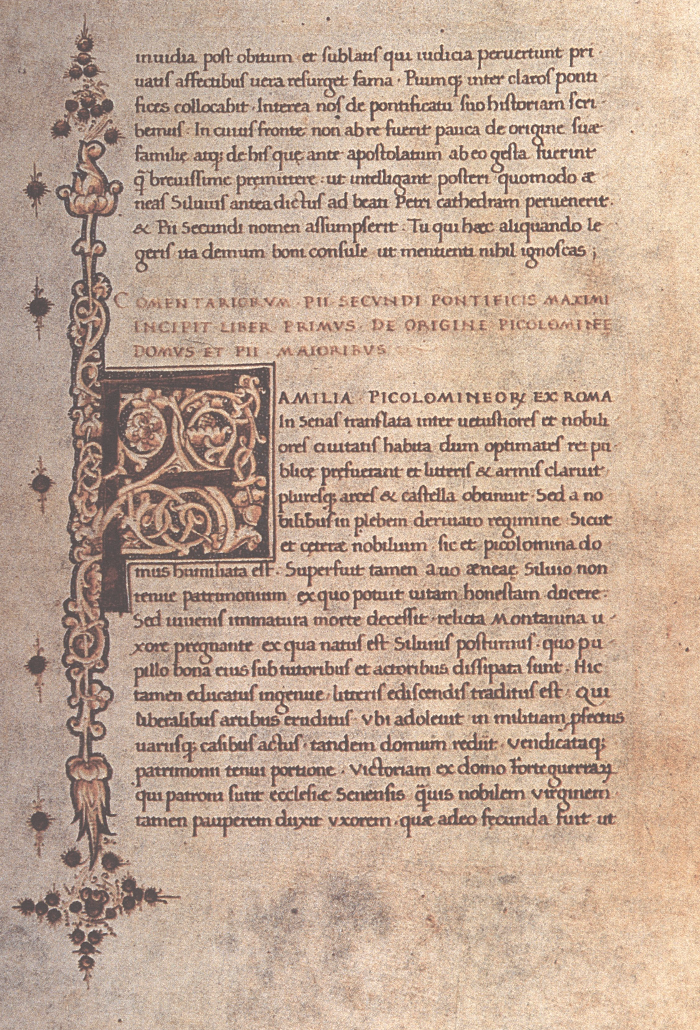 inuidia post obitum · et sublatis qui iudicia peruertunt pri ·
uatis affectibus uera resurget fama · Piumq; inter claros ponti ·
fices collocabit · Interea nos de pontificatu suo historiam scri ·
bemus · In cuius fronte non ab re fuerit pauca de origine suæ
familię atq; de his quę ante apostolatum ab eo gesta fuerint
q̃ breuissime pręmittere · ut intelligant posteri quomodo æ
neas Siluius antea dictus ad beati Petri cathedram peruenerit ·
& Pii Secundi nomen assumpserit · Tu qui hæc aliquando le
geris ita demum boni consule ut mentienti nihil ignoscas ;
COMENTARIORVM · PII SECVNDI PONTIFICIS MAXIMI
INCIPIT LIBER PRIMVS · DE ORIGINE PICOLOMINEE
DOMVS ET PII · MAIORIBVS
FAMILIA · PICOLOMINEOꝜ EX ROMA
In Senas translata inter uetustiores et nobili
ores ciuitatis habita dum optimates rei pu ·
blicę prefuerant et litteris & armis claruit ·
pluresq; arces & castella obtinuit · Sed a no
bilibus in plebem deriuato regimine · Sicut
et cęteræ nobilium · sic et picolomina do
mus humiliata est · Superfuit tamen auo æneæ Siluio non
tenue patrimonium ex quo potuit uitam honestam ducere ·
Sed iuuenis immatura morte decessit · relicta Montanina u ·
xore pregnante ex qua natus est Siluius postumus · quo pu ·
pillo bona eius sub tutoribus et actoribus dissipata sunt · Hic
tamen educatus ingenue · litteris ediscendis traditus est · Qui
liberalibus artibus eruditus · Vbi adoleuit in militiam ꝓfectus
uariisq; casibus actus · tandem domum rediit · vendicataq;
patrimonii tenui portione · Victoriam ex domo Forteguerraꝝ
qui patroni sunt ecclesiæ Senensis q̃uis nobilem virginem ·
tamen pauperem duxit vxorem · quæ adeo fęcunda fuit ut